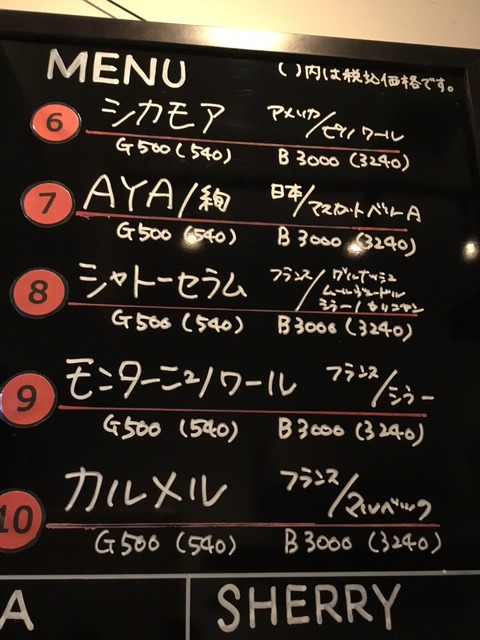 MENU ( )内は税込価格です。
6 シカモア アメリカ/ピノノワール
G500(540) B3000(3240)
7 AYA/絢 日本/マスカットベリーA
G500(540) B3000(3240)
8 シャトーセラム フランス/グルナッシュ
ムールヴェードル
シラー/カリニャン
G500(540) B3000(3240)
9 モンターニュノワール フランス/シラー
G500(540) B3000(3240)
10 カルメル フランス/マルベック
G500(540) B3000(3240)
A SHERRY